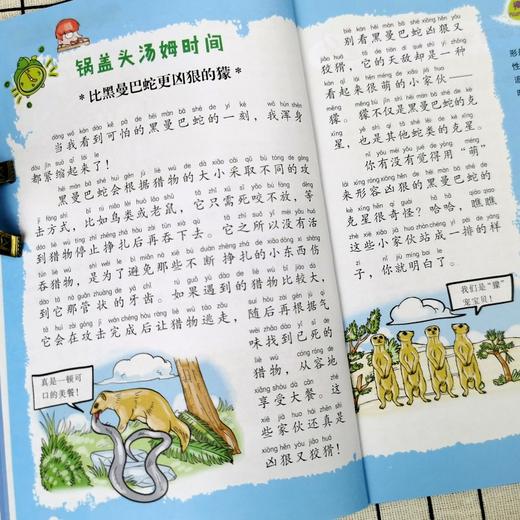 锅盖头汤姆时间
*比黑曼巴蛇更凶狠的獴*
当我看到可怕的黑曼巴蛇的一刻，我浑身
都紧缩起来了！
黑曼巴蛇会根据猎物的大小采取不同的攻
击方式，比如鸟类或老鼠，它只需死咬不放，等
到猎物停止挣扎后再吞下去。它之所以没有活
吞猎物，是为了避免那些不断挣扎的小东西伤
到它那管状的牙齿。如果遇到的猎物比较大，
它会在攻击完成后让猎物逃走，随后再根据气
味找到已死的
猎物，从容地
享受大餐。这
些家伙还真是
凶狠又狡猾！
真是一顿可
口的美餐！
别看黑曼巴蛇凶狠又
狡猾，它的天敌却是一种
看起来很萌的小家伙——
獴。獴不仅是黑曼巴蛇的克
星，也是其他蛇类的克星。
你有没有觉得用“萌”
来形容凶狠的黑曼巴蛇的
克星很奇怪？哈哈，瞧瞧
这些小家伙站成一排的样
子，你就明白了。
我们是“獴”
宠宝贝！
形
性